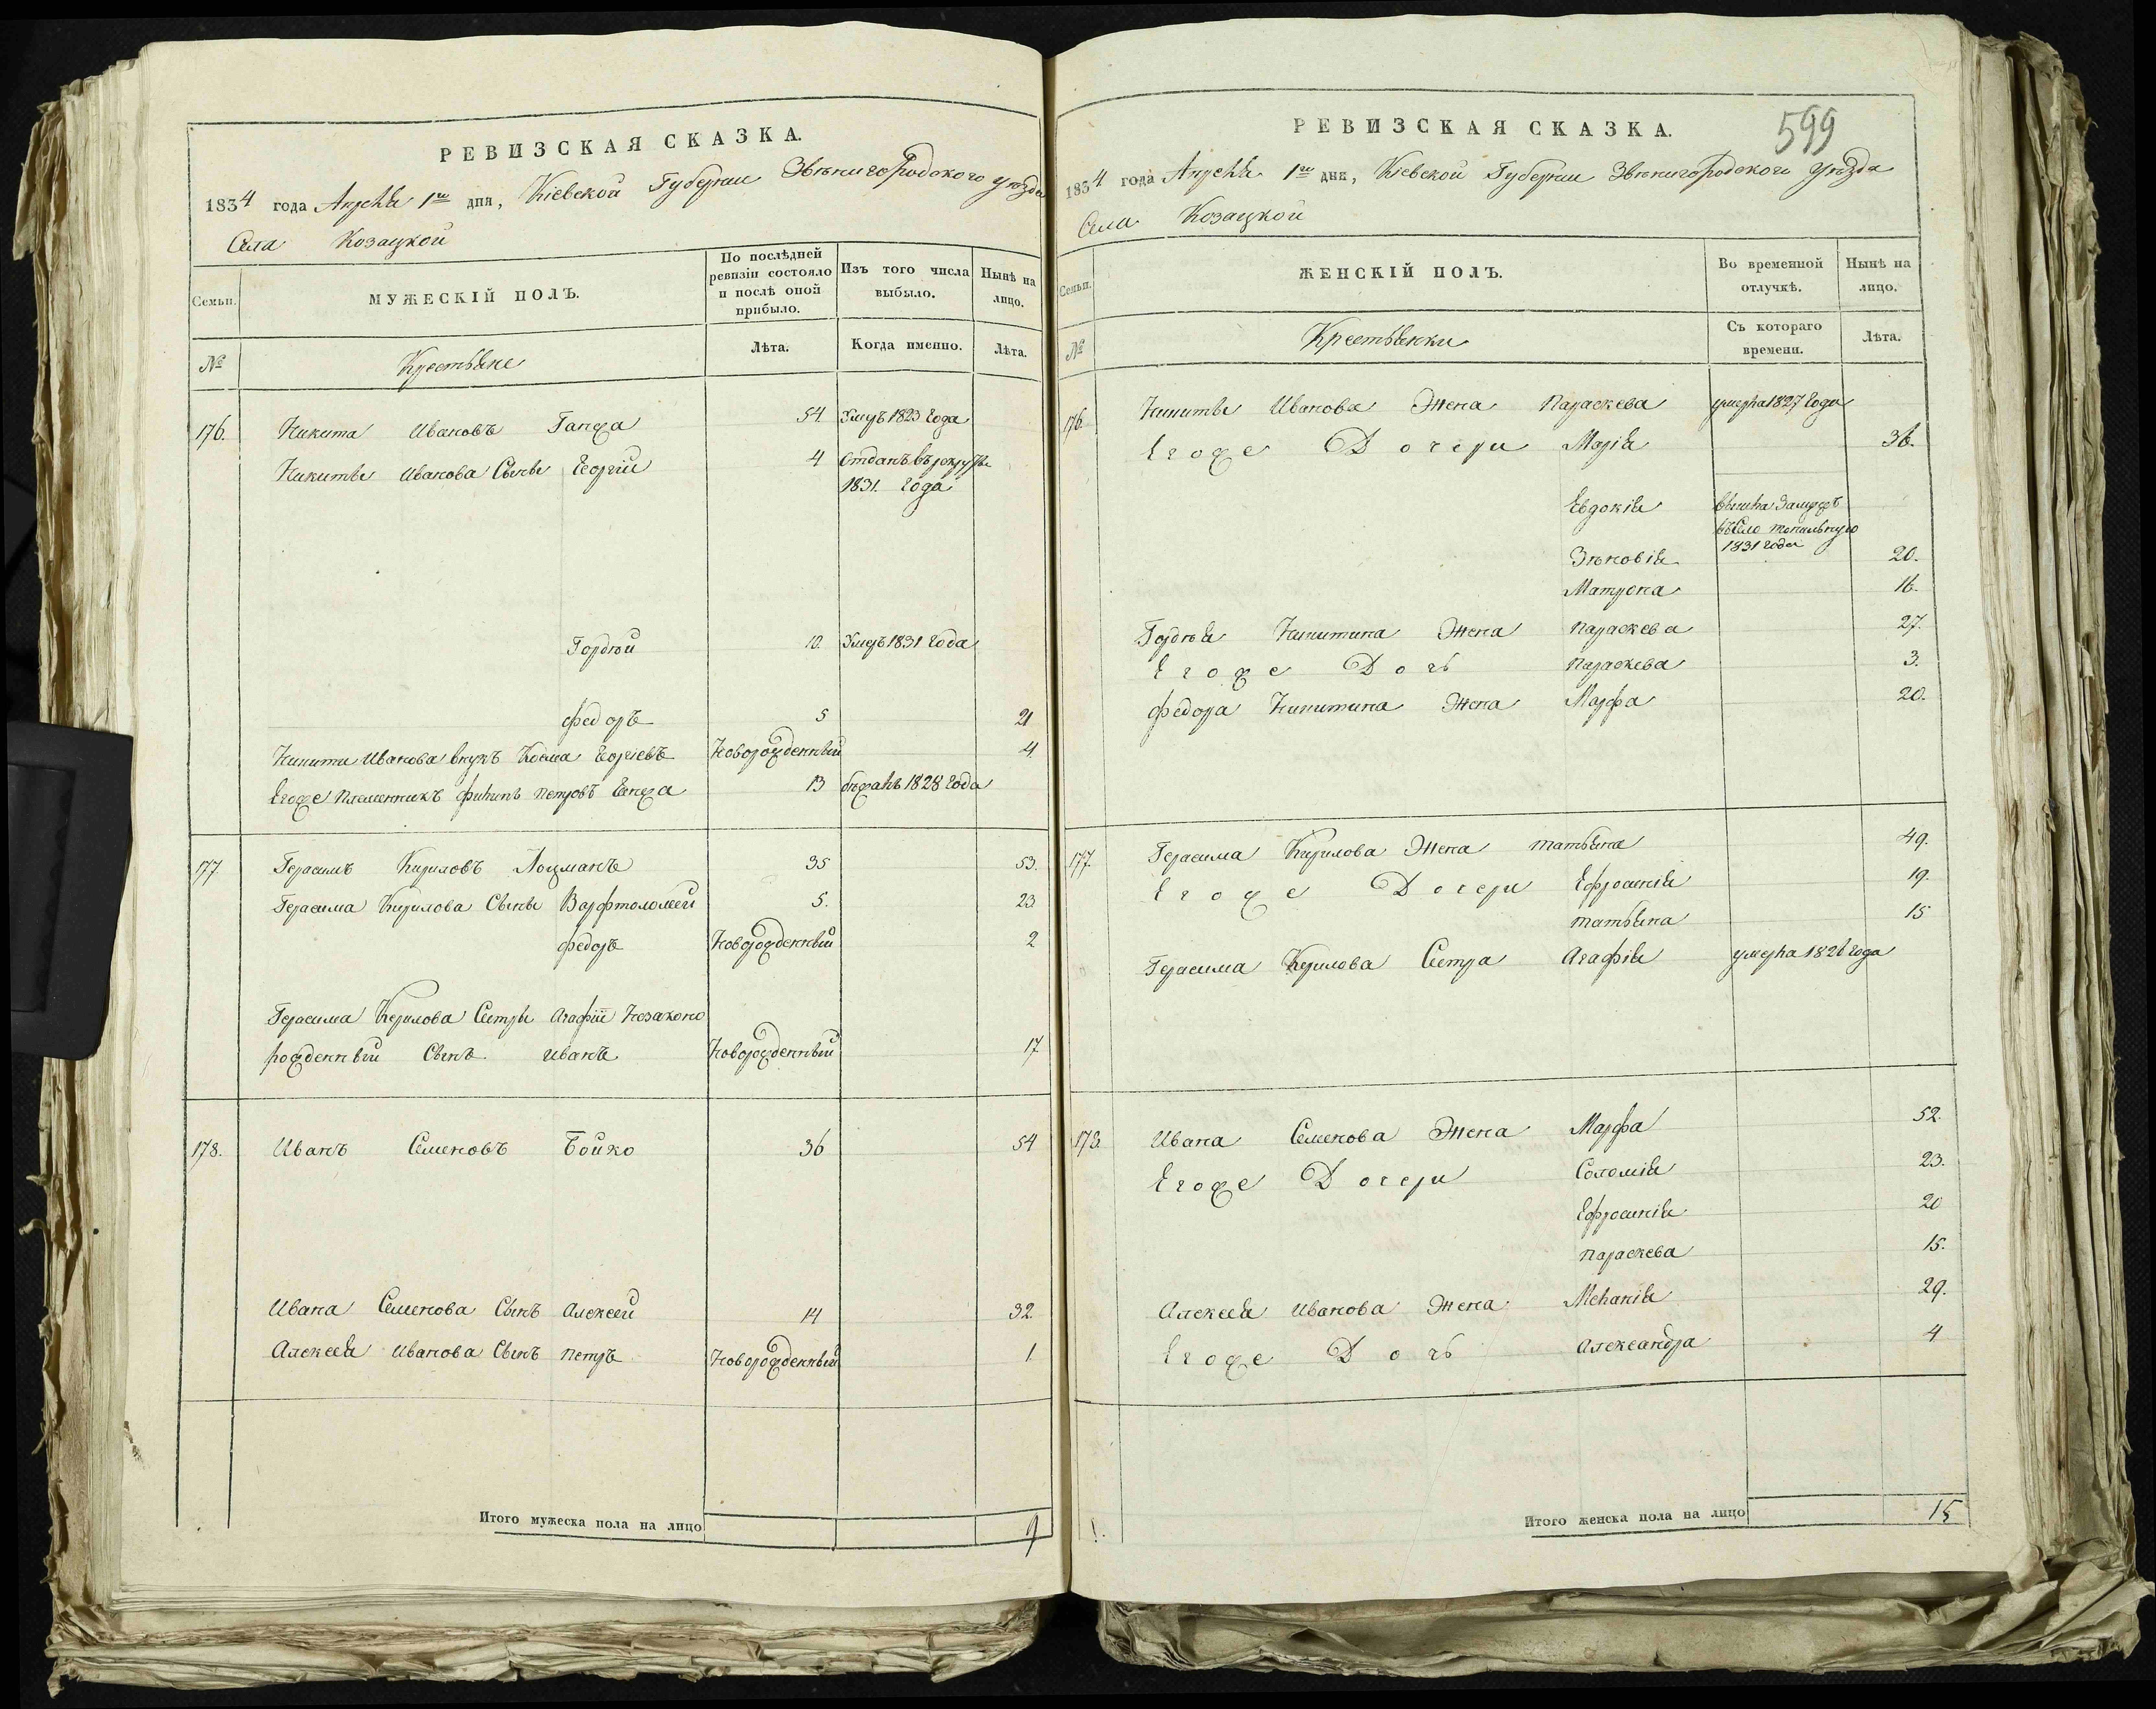 РЕВИЗСКАЯ СКАЗКА.
1834 года Апреля 1го дня, Кіевской Губернии Звенигородского уезда
Села Козацкой
Семьи.
МУЖЕСКІЙ ПОЛЪ.
По послѣдней ревизіи состояло и послѣ оной прибыло.
Изъ того числа выбыло.
Нынѣ на лицо.
№
Крестьяне
Лѣта.
Когда именно.
Лѣта.
176. Никита Ивановъ Ганжа 54 Умеръ 1823 года
Никиты Иванова Сыны Георгий 4 Отданъ въ рекруты
1831. года
Гордѣй 10. Умеръ 1831 года
Федоръ 5 21
Никиты Иванова внукъ Козма Георгіевъ Новорожденный 4.
Егоже племенникъ Филипъ Петровъ Ганжа 13 бежалъ 1828 года
177. Герасимъ Кириловъ Лоцманъ 35 53.
Герасима Кирилова Сыны Варфтоломей 5. 23
Федоръ Новорожденный 2
Герасима Кирилова Сестры Агафіи Незаконо
рожденный Сынъ Иванъ Новорожденный 17
178. Иванъ Семеновъ Бойко 36 54
Ивана Семенова Сынъ Алексей 14 32.
Алексея Иванова Сынъ Петръ Новорожденный 1
Итого мужеска пола на лицо 9
РЕВИЗСКАЯ СКАЗКА.
599
1834 года Апреля 1го дня, Кіевской Губернии Звенигородского уезда
Села Козацкой
Семьи.
ЖЕНСКІЙ ПОЛЪ.
Во временной отлучкѣ.
Нынѣ на лицо.
№
Крестьянки
Съ котораго времени.
Лѣта.
176. Никиты Иванова Жена Параскева умерла 1827 года
Егоже Дочери Марія 36.
Евдокія вышла замужъ
въ село
1831 года
Зеновія 20.
Матрона 16.
Гордѣя Никитина Жена Параскева 27.
Егоже Дочь Параскева 3.
Федора Никитина Жена Марфа 20.
177. Герасима Кирилова Жена Татьяна 49.
Егоже Дочери Ефросинія 19.
Татьяна 15
Герасима Кирилова Сестра Агафія умерла 1826 года
178. Ивана Семенова Жена Марфа 52.
Егоже Дочери Соломія 23.
Ефросинія 20
Параскева 15.
Алексея Иванова Жена Меланія 29.
Егоже Дочь Александра 4
Итого женска пола на лицо 15